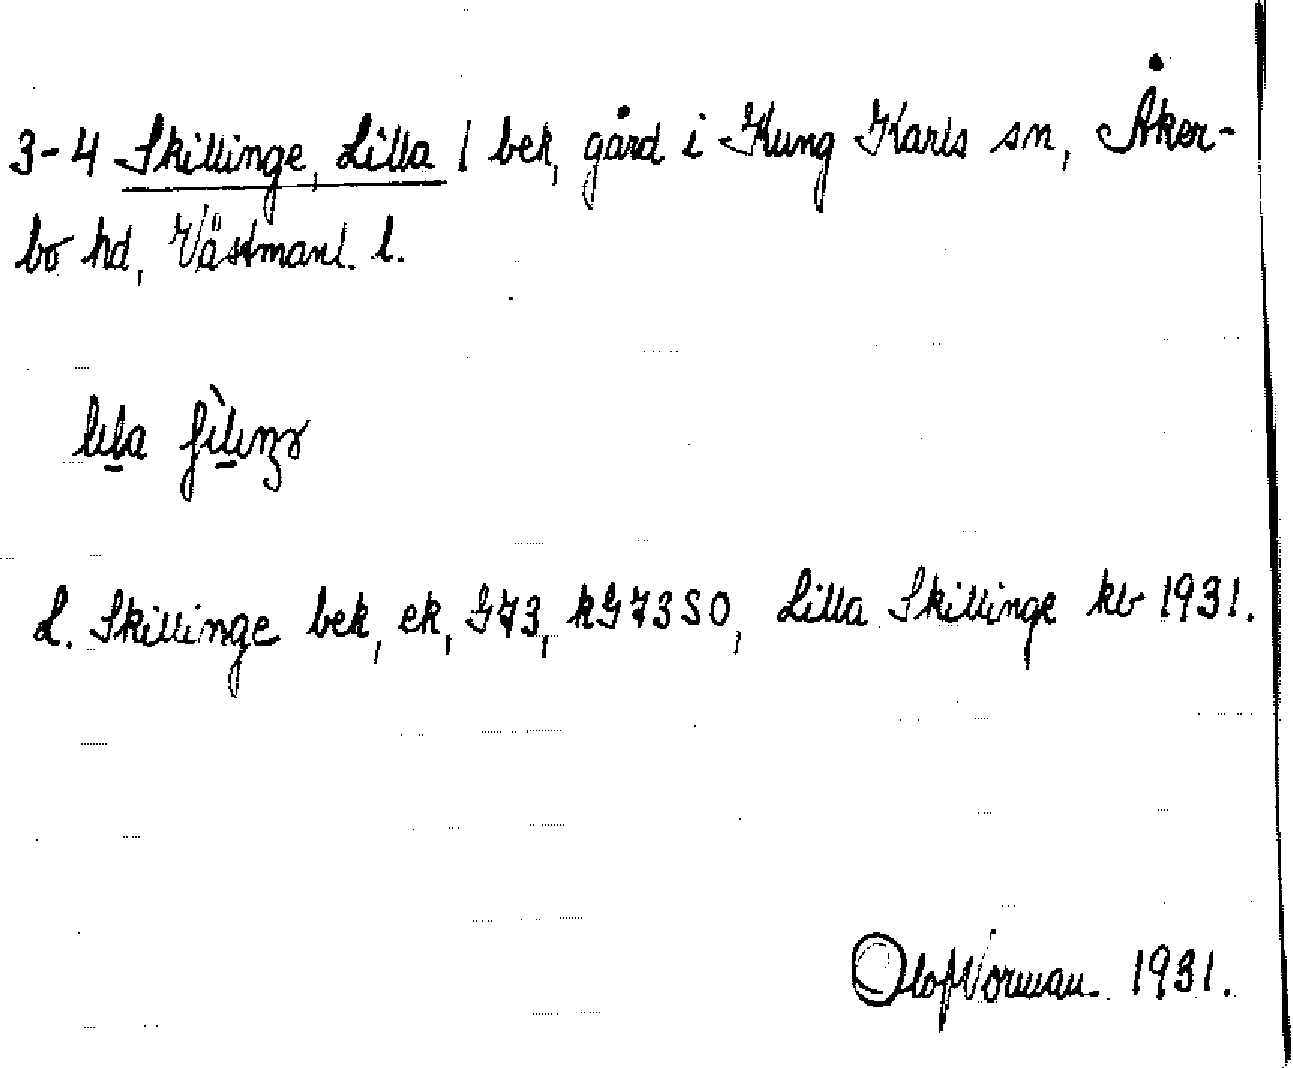 3-4 Skillinge, Lilla 1 bek, gård i Kung Karls sn, Åker-
bo hd, Västmanl. l.
lila
L. Skillinge bek, ek, G73, kG73SO, Lilla Skillinge kb 1931.
Olof Norman. 1931.